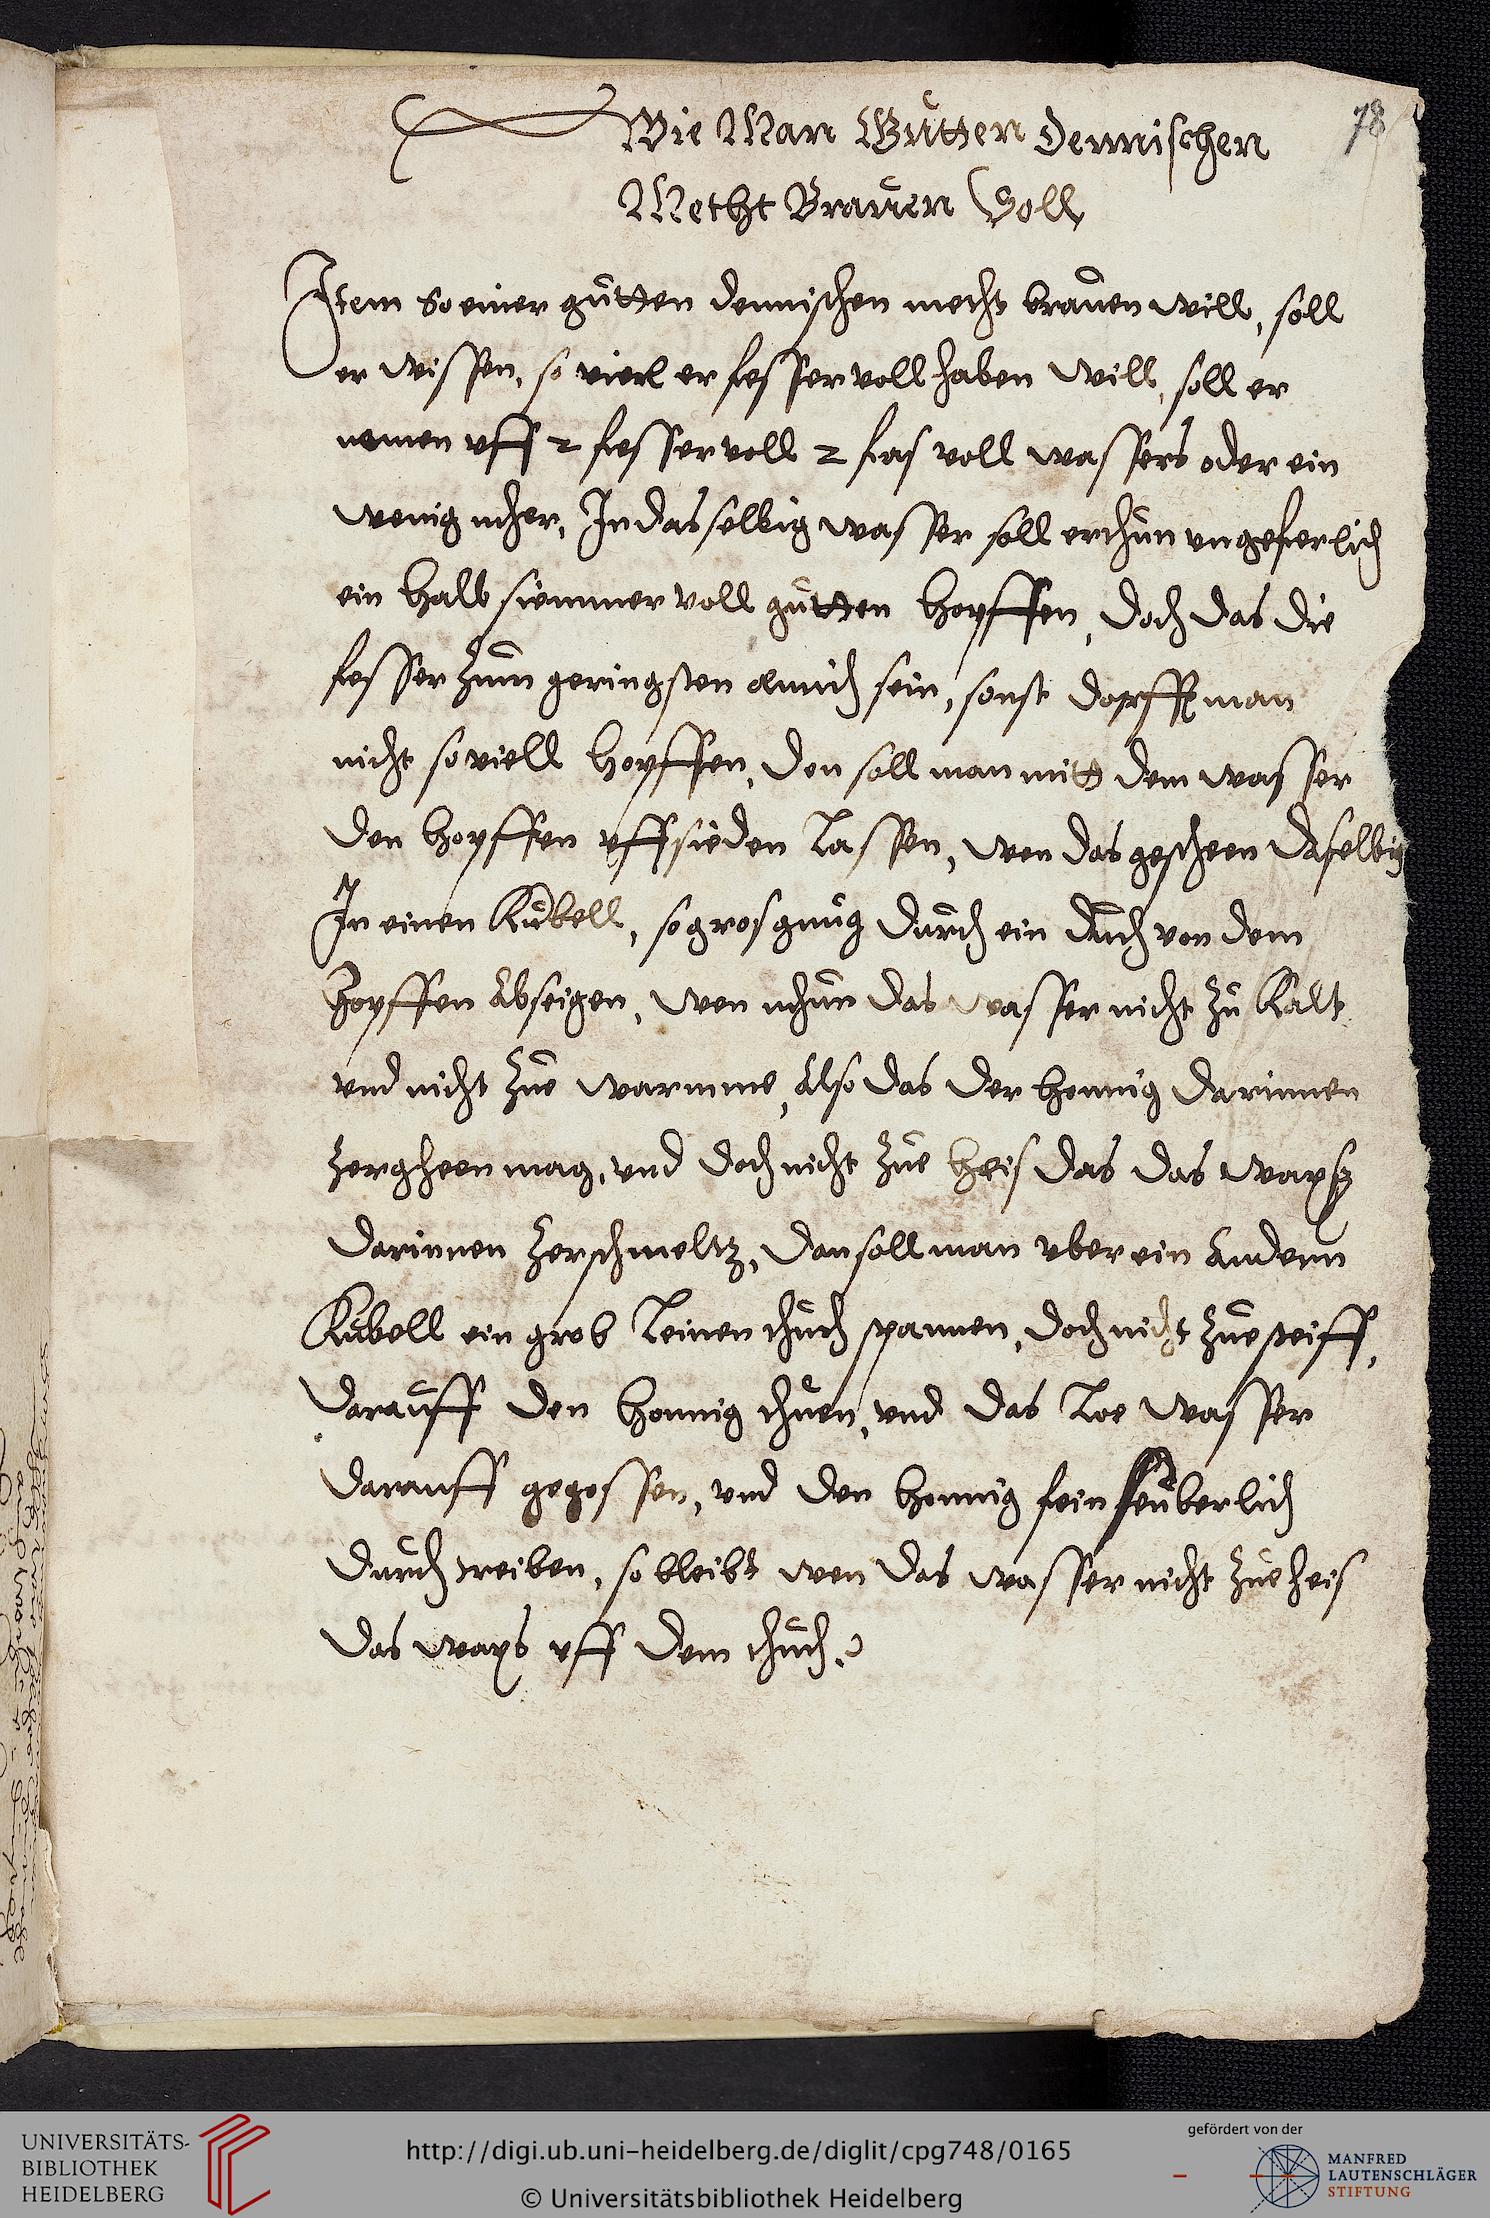 78
Wie Man Gutten dennischen
Metht Brauen Soll
Item so einer gutten dennischen mecht brauen will, soll
er wissen, so vierl er fesser voll haben will, soll er
nemen uff 2 fesser voll 2 fas voll wassers oder ein
wenig mher, In das selbig wasser soll er thun ungeferlich
ein halb siemmer voll gutten hopffen, doch das die
fesser zum geringsten sein, sonst dorfft man
nicht so viell hopffen, den soll man mitt dem wasser
den hopffen uffsieden Lassen, wen das gescheen daselbig
In einen Kubell, so gros gnug durch ein duch von dem
hopffen abseigen, wen nhun das wasser nicht zu Kalt
und nicht zue warmme, also das der honnig darinnen
zergheen mag, und doch nicht zue heis das das waxs
darinnen zerschmeltz, dan soll man uber ein andern
Kubell ein grob Leinen thuch spannen, doch nicht zue steiff,
darauff den honnig thuen, und das Loe wasser
darauff gegossen, und den honnig fein seuberlich
durch treiben, so bleibt wen das wasser nicht zue heis
das waxs uff dem thuch.
UNIVERSITÄTS-
BIBLIOTHEK
HEIDELBERG
http://digi.ub.uni-heidelberg.de/diglit/cpg748/0165
© Universitätsbibliothek Heidelberg
gefördert von der
MANFRED
LAUTENSCHLÄGER
STIFTUNG